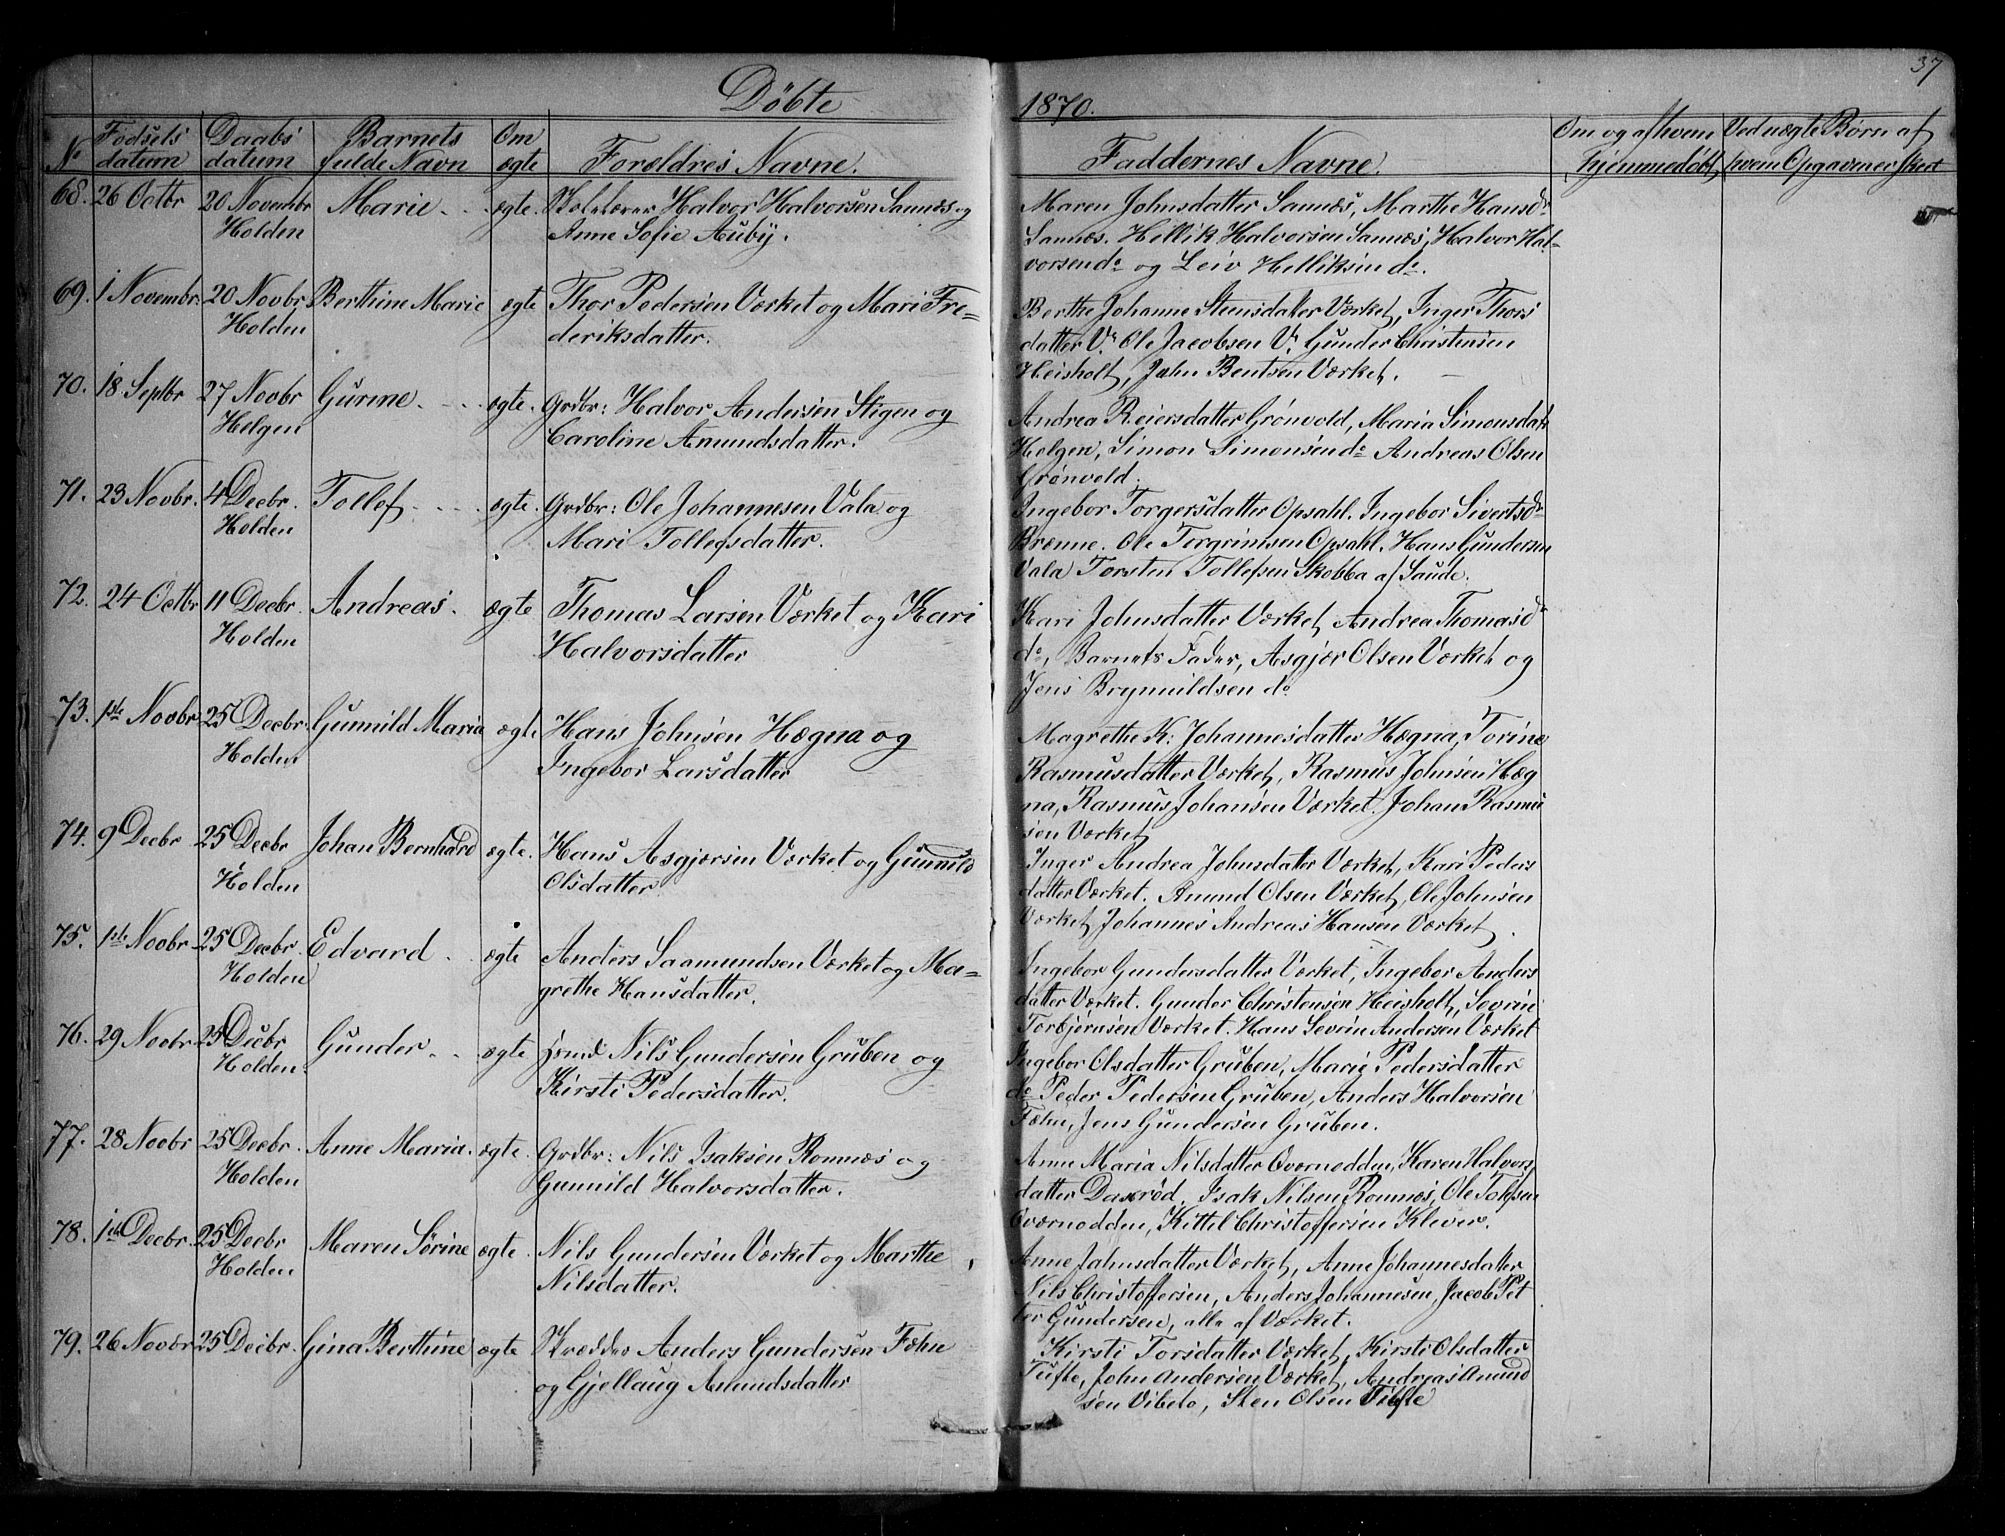 37
Døbte
1870.
No
Fødsels
datum
Daabs
datum
Barnets
fulde Navn
Om
ægte
Forældres Navne.
Faddernes Navne.
Om og af hvem
hjemmedøbt,
Ved uægte Børn af
hvem Opgaven er skeet
68. 26 Octbr 20 Novembr Marie. ægte. Halvor Halvorsen Sannæs og
Holden Anne Sofie Auby.
Maren Johnsdatter Sannæs, Marthe Hansdr
Sannæs. Hellik Halvorsen Sannæs, Halvor Hal-
vorsen do og Leiv Helliksen do.
69. 1 Novembr. 20 Novbr. Berthine Marie ægte Thor Pedersen Værket og Mari Fre=
Holden deriksdatter.
Berthe Johanne Stensdatter Værket, Inger Thors
datter V. Ole Jacobsen V. Gunder Christensen
Heisholt, John Bentsen Værket.
70. 18 Septbr 27 Novbr Gurine. ægte. Grdbr: Halvor Andersen Stigen og
Helgen Caroline Amundsdatter.
Andrea Reiersdatter Grønvold, Maria Simonsdatr
Helgen, Simon Simonsen do Andreas Olsen
Grønvold.
71. 23 Novbr. 4 Decbr. Tollef. ægte. Grdbr: Ole Johannesen Vala og
Holden Mari Tollefsdatter.
Ingebor Torgersdatter Opsahl. Ingebor Sivertsdr
Brænne. Ole Torgrimsen Opsahl. Hans Gundersen
Vala Torsten Tollefsen Skobba af Saude.
72. 24 Octbr 11 Decbr. Andreas. ægte Thomas Larsen Værket og Kari
Holden Halvorsdatter
Kari Johnsdatter Værket, Andrea Thomasdr
do, Barnets Fader, Asgjær Olsen Værket og
Jens Brynuldsen do
73. 1ste Novbr. 25 Decbr. Gunnild Maria ægte Hans Johnsen Hægna og
Holden Ingebor Larsdatter
Magrethe K: Johannesdatter Hægna, Torine
Rasmusdatter Værket, Rasmus Johnsen Hæg
na, Rasmus Johansen Værket. Johan Rasmu
sen Værket
74. 9 Decbr 25 Decbr Johan Bernhard ægte. Hans Asgjærsen Værket og Gunnild
Holden Olsdatter
Inger Andrea Johnsdatter Værket, Kari Peders
datter Værket. Amund Olsen Værket, Ole Johnsen
Værket, Johannes Andreas Hansen Værket.
75. 1ste Novbr. 25 Decbr. Edvard. ægte Anders Saamundsen Værket og Ma=
Holden grethe Hansdatter.
Ingebor Gundersdatter Værket, Ingebor Anders
datter Værket. Gunder Christensen Heisholt, Sevrin
Torbjørnsen Værket. Hans Sevrin Andersen Værket
76. 29 Novbr. 25 Decbr Gunder. ægte Nils Gundersen Gruben og
Holden. Kirsti Pedersdatter.
Ingebor Olsdatter Gruben, Marie Pedersdatter
do Peder Pedersen Gruben, Anders Halvorsen
Fæhn, Jens Gundersen Gruben.
77. 28 Novbr 25 Decbr. Anne Maria. ægte. Grdbr: Nils Isaksen Romnæs og
Holden Gunnild Halvorsdatter.
Anne Maria Nilsdatter Overnodden, Karen Halvors
datter Isak Nilsen Romnæs, Ole
Kittel Christoffersen Klever.
78. 1ste Decbr. 25 Decbr Maren Sørine ægte. Nils Gundersen Værket og Marthe
Holden Nilsdatter.
Anne Jahnsdatter Værket, Anne Johannesdatter
Nils Christoffersen, Anders Johannesen, Jacob Pet
ter Gundersen, alle af Værket.
79. 26 Novbr 25 Decbr. Gina Berthine ægte Skrædder Anders Gundersen Fæhn
og Gjellaug Amundsdatter
Kirsti Torsdatter Værket, Kirsti Olsdatter
Tufte, John Andersen Værket, Andreas Amund
sen Vibeto, Sten Olsen Tufte